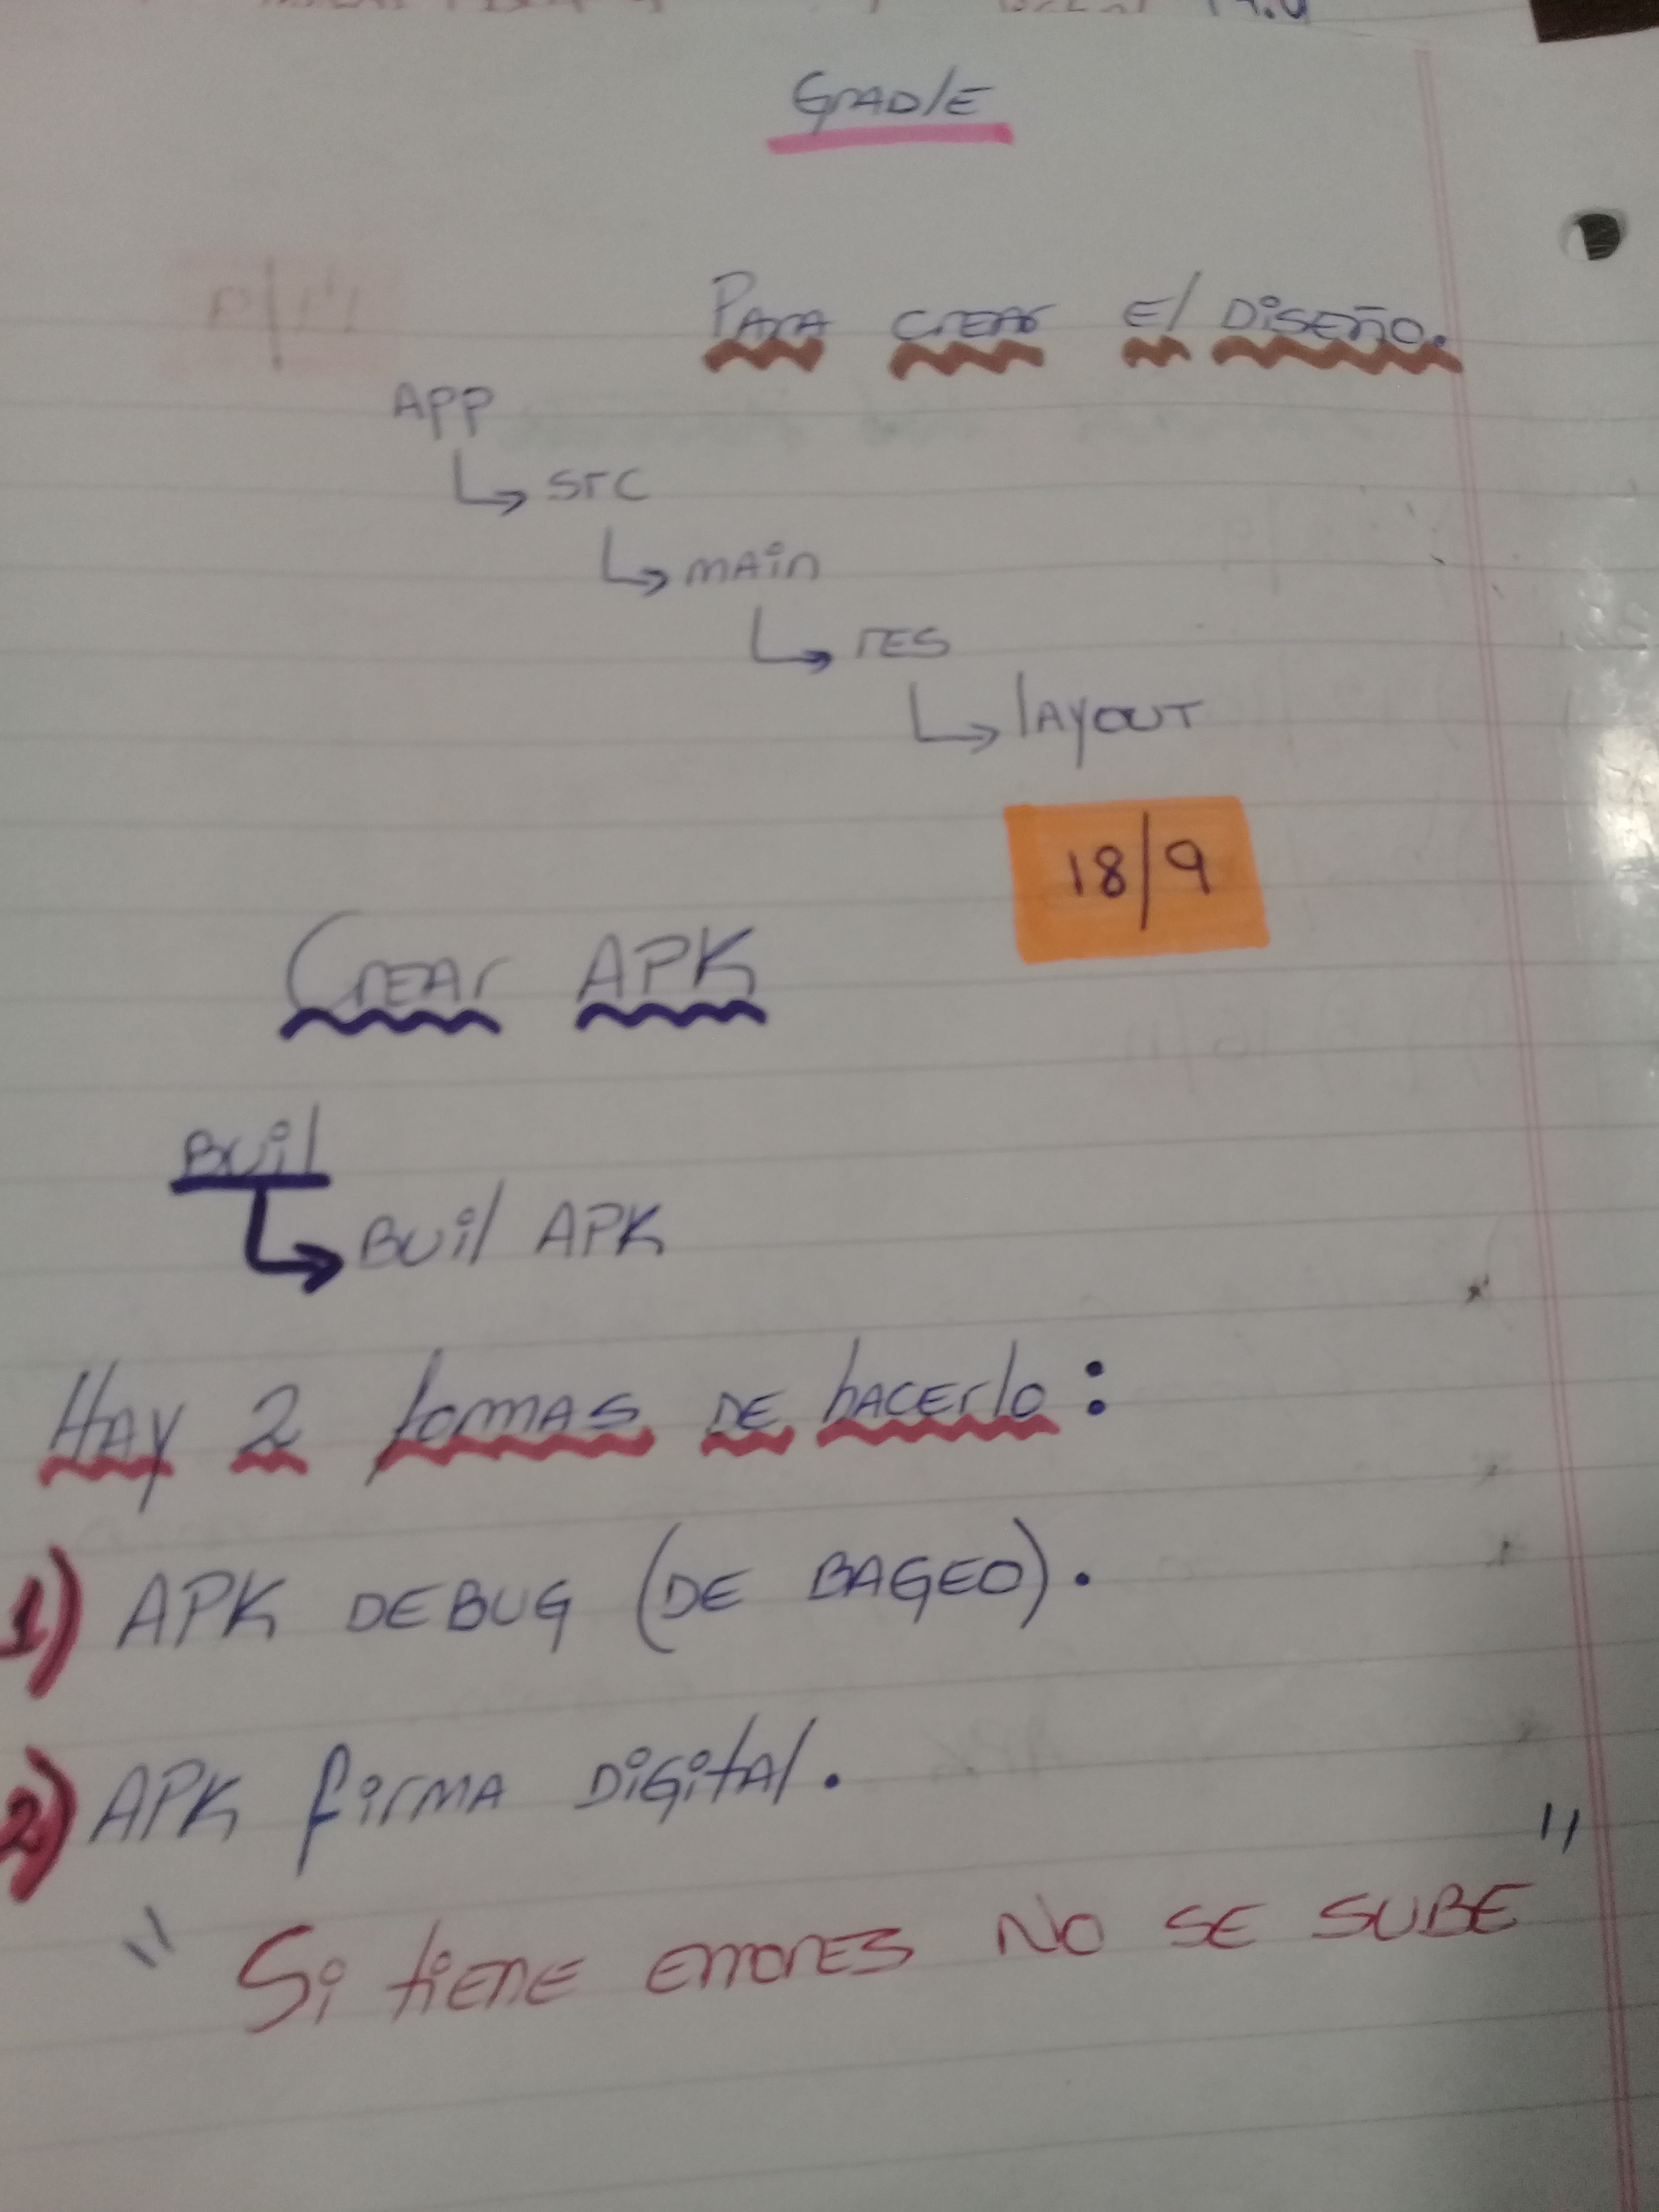 GradlE
Para crear El DiSEño.
APP
src
mAin
rES
lAyOUT
18/9
CrEAr APK
BUil
BUil APK
HAy 2 formAS DE hACErlo:
1) APK DEBUG (DE BAGEO).
2) APK firmA DiGitAl.
"Si tiENE ErrorES NO SE SUBE"